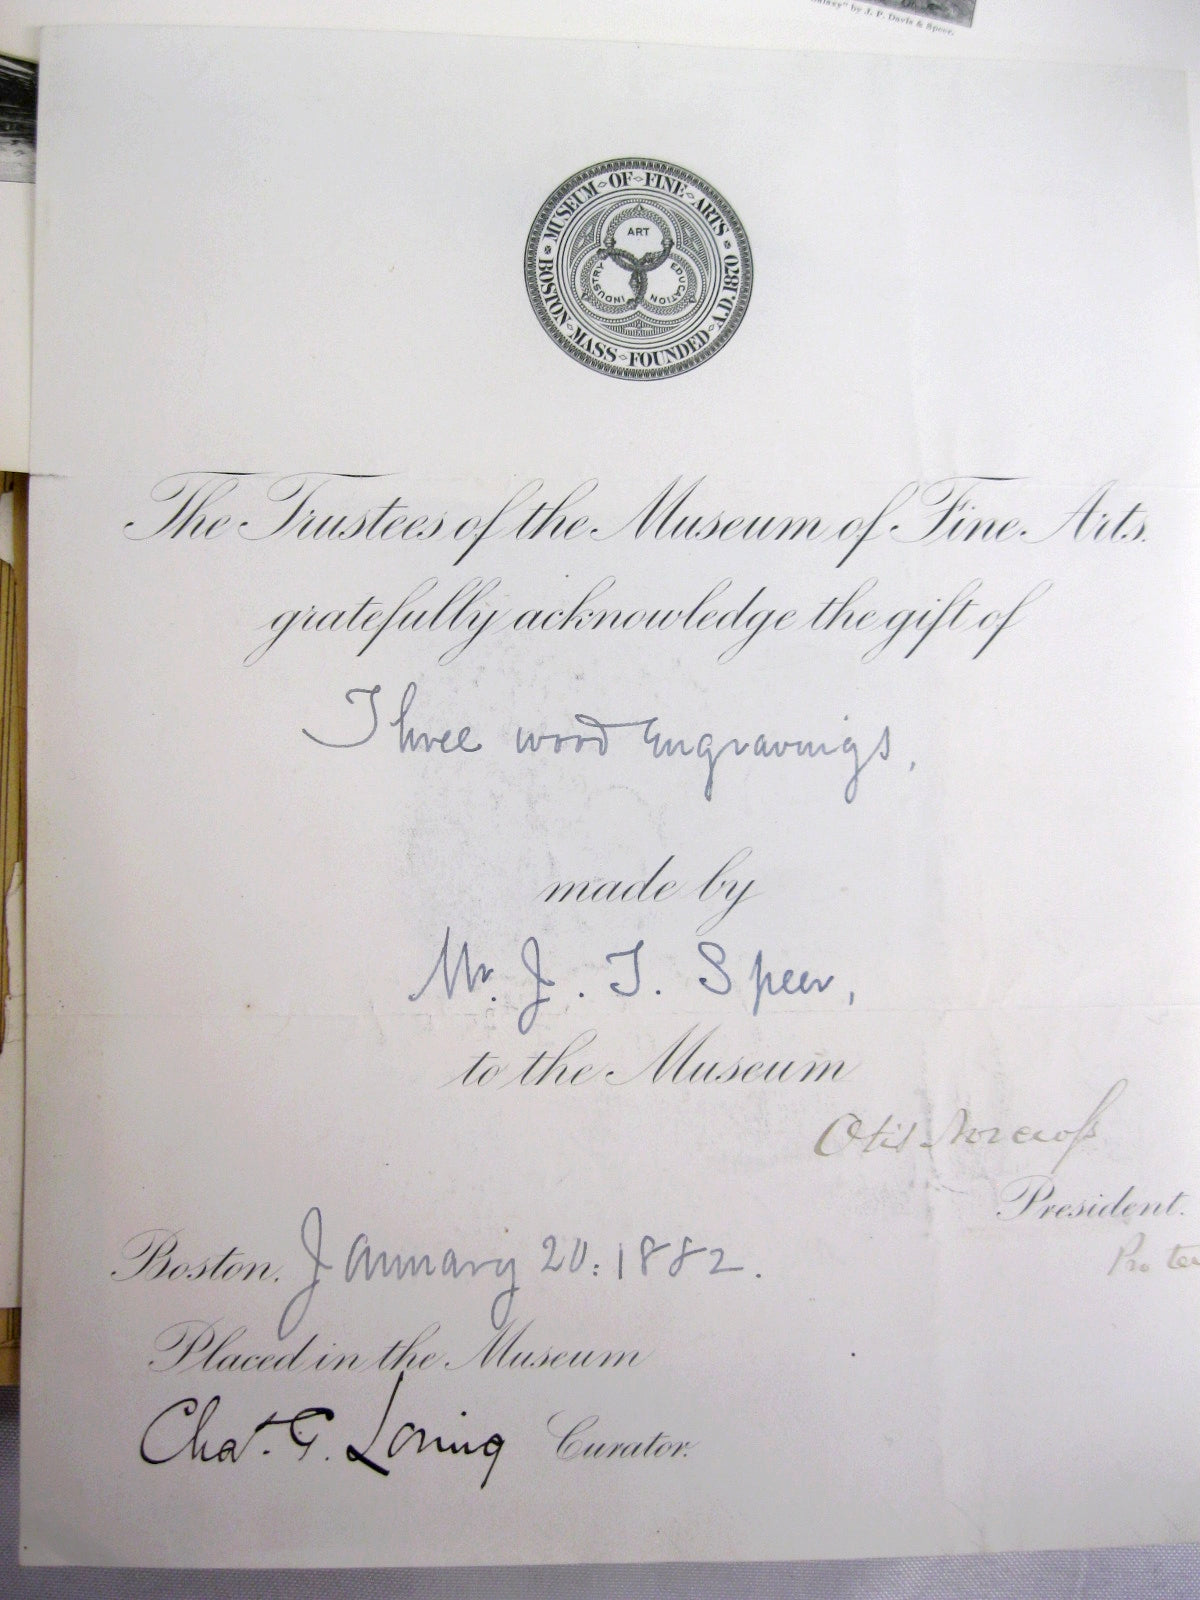 Galaxy" by J. P. Davis & Speer.
MUSEUM OF FINE ARTS
BOSTON MASS FOUNDED A.D. 1870
ART
INDUSTRY
EDUCATION
The Trustees of the Museum of Fine Arts.
gratefully acknowledge the gift of
Three wood Engravings,
made by
Mr. J. T. Speer,
to the Museum
Otis Norcross
President.
Pro te
Boston, January 20: 1882.
Placed in the Museum
Chas. G. Loring Curator.